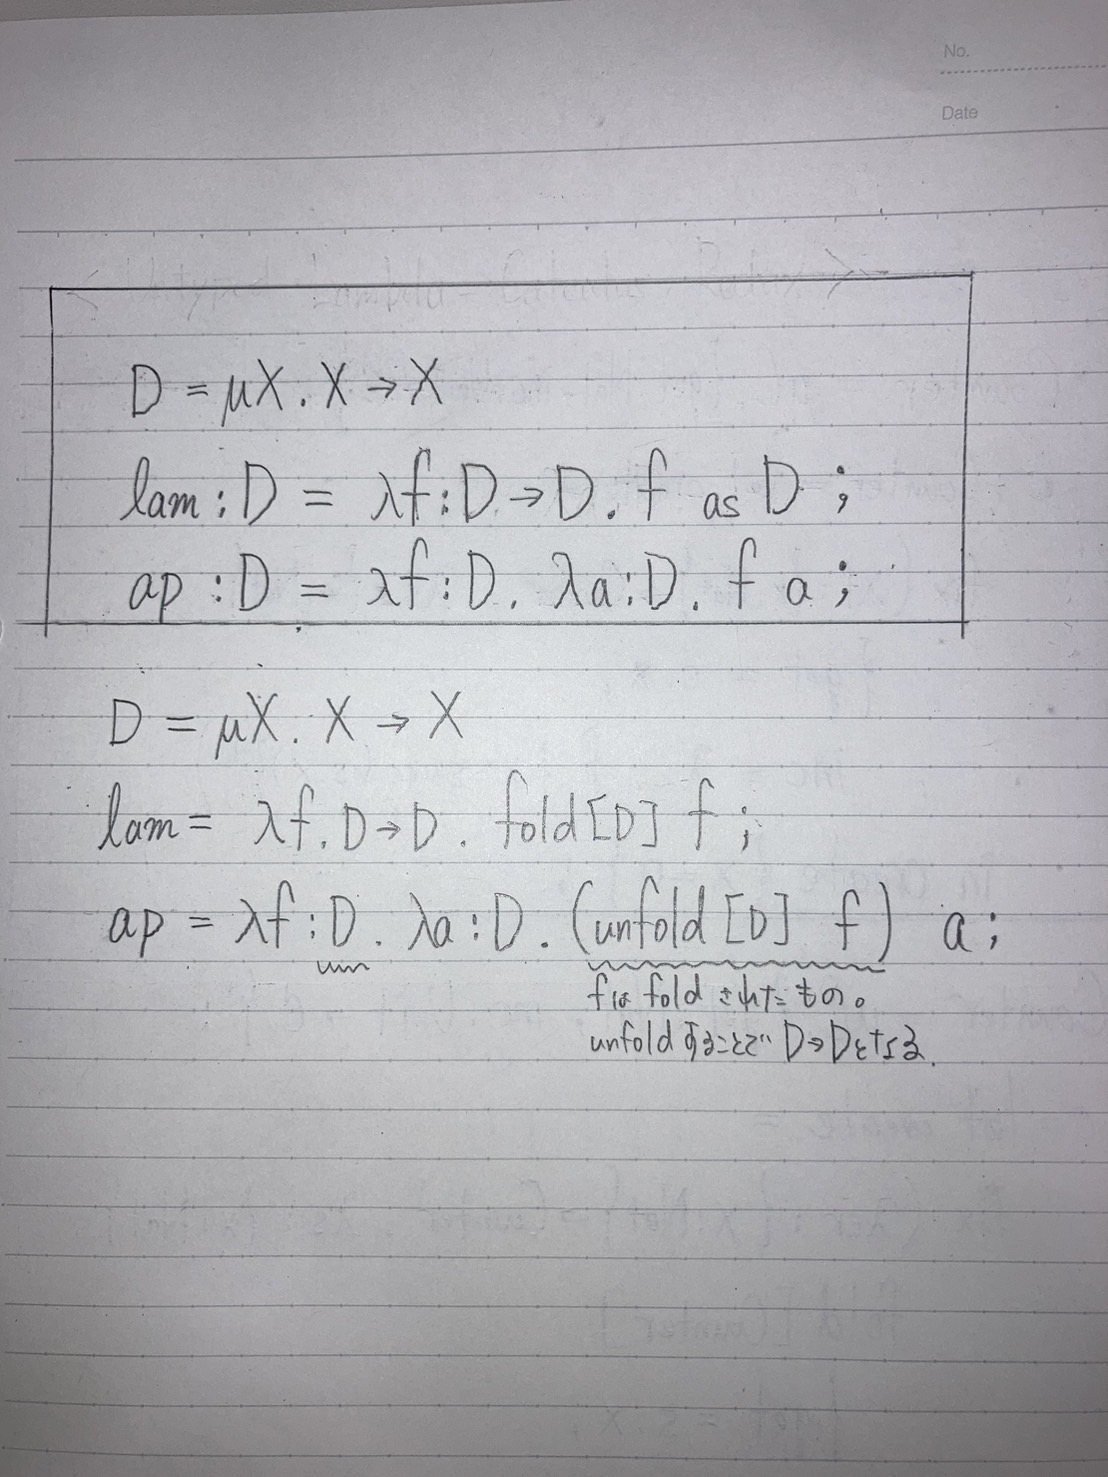 No.
Date
D = μX. X → X
lam : D = λf : D → D. f as D ;
ap : D = λf : D. λa : D. f a ;
D = μX. X → X
lam = λf. D → D. fold [D] f ;
ap = λf : D. λa : D. (unfold [D] f) a ;
fは fold されたもの。
unfold することで D → D となる.